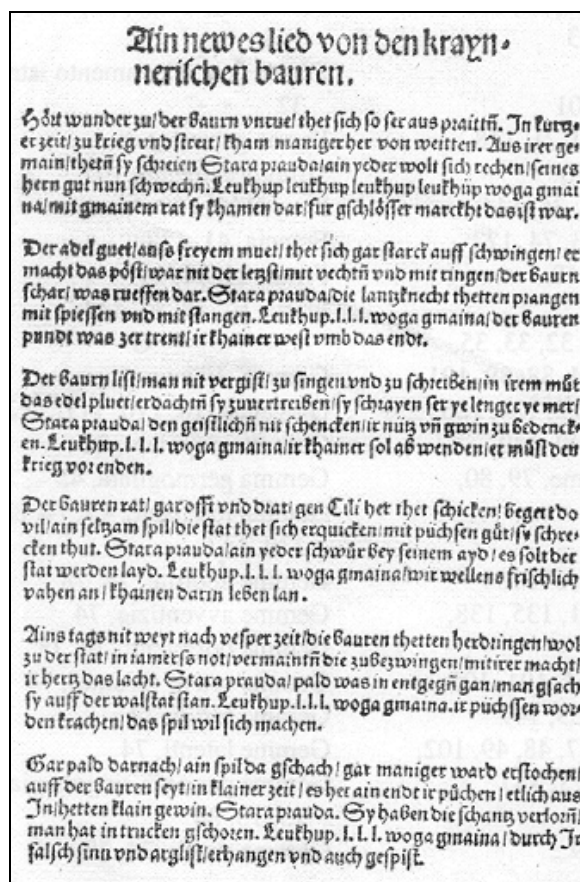 Ain newes lied von den krayn-
nerischen bauren.
Hört wunder zu/ der Baurn unrue/ thet sich so ser aus praittn̄. In kurtz-
er zeit/ zu krieg vnd streit/ kham maniger her von weitten. Aus irer ge-
main/ thetn̄ sy schreien Stara prauda/ ain yeder wolt sich rechen/ seines
hern gut nun schwechn̄. Leukhup leukhup leukhup leukhup woga gmai
na/ mit gmainem rat sy khamen dar/ fur gschlösser marckht das ist war.
Der adel guet/ auss freyem muet/ thet sich gar starck auff schwingen/ er
macht das pöst/ war nit der letzst/ mit vechtn̄ vnd mit ringen/ der Baurn
schar/ was rueffen dar. Stara prauda/ die lantzknecht thetten prangen
mit spiessen vnd mit stangen. Leukhup.l.l.l. woga gmaina/ der bauren
pundt was zer trent/ ir khainer west vmb das endt.
Der Baurn list/ man nit vergist/ zu singen vnd zu schreiben/ in irem můt
das edel pluet/ erdachtn̄ sy zuuertreiben/ sy schrayen ser ye lenger ye mer/
Stara prauda/ den geistlichn̄ nit schencken/ ir nutz vn̄ gwin zu bedenck-
en. Leukhup.l.l.l. woga gmaina/ ir khainer sol ab wenden/ er můst den
krieg vor enden.
Der bauren rat/ gar offt vnd drat/ gen Cili her thet schicken/ begert do
vil/ ain seltzam spil/ die stat thet sich erquicken/ mit püchsen gůt/ sy schre-
cken thut. Stara prauda/ ain yeder schwůr bey seinem ayd/ es solt der
stat werden layd. Leukhup.l.l.l. woga gmaina/ wir wellens frischlich
vahen an/ khainen darin leben lan.
Ains tags nit weyt nach vesper zeit/ die bauren thetten herdringen/ wol
zu der stat/ in iamerss not/ vermaintn̄ die zubezwingen/ mit irer macht/
ir hertz das lacht. Stara prauda/ pald was in entgegn̄ gan/ man gsach
sy auff der walstat stan. Leukhup.l.l.l. woga gmaina. ir püchssen wor-
den krachen/ das spil wil sich machen.
Gar pald darnach/ ain spil da gschach/ gar maniger ward erstochen/
auff der bauren seyt/ in klainer zeit/ es her ain endt ir půchen/ etlich aus
In/ hetten klain gewin. Stara prauda. Sy haben die schantz verlorn̄/
man hat in trucken gschoren. Leukhup.l.l.l. woga gmaina/ durch Ir
falsch sinn vnd arglist/ erhangen vnd auch gespist.